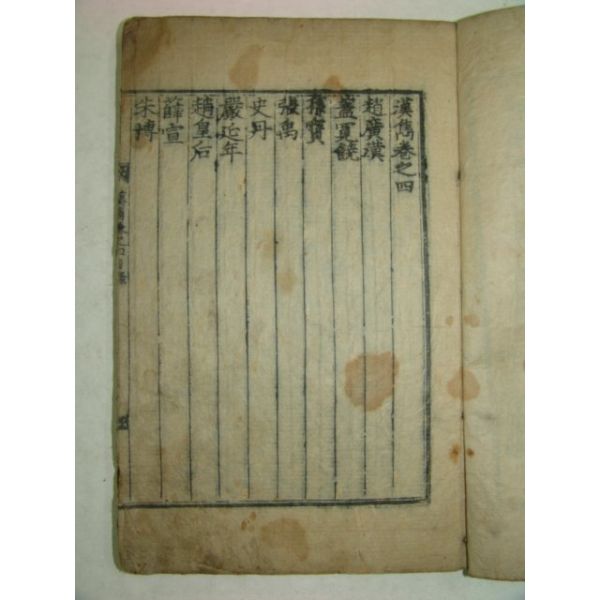 漢雋卷之四
趙廣漢
蓋寬饒
孫寶
張禹
史丹
嚴延年
趙皇后
薛宣
朱博